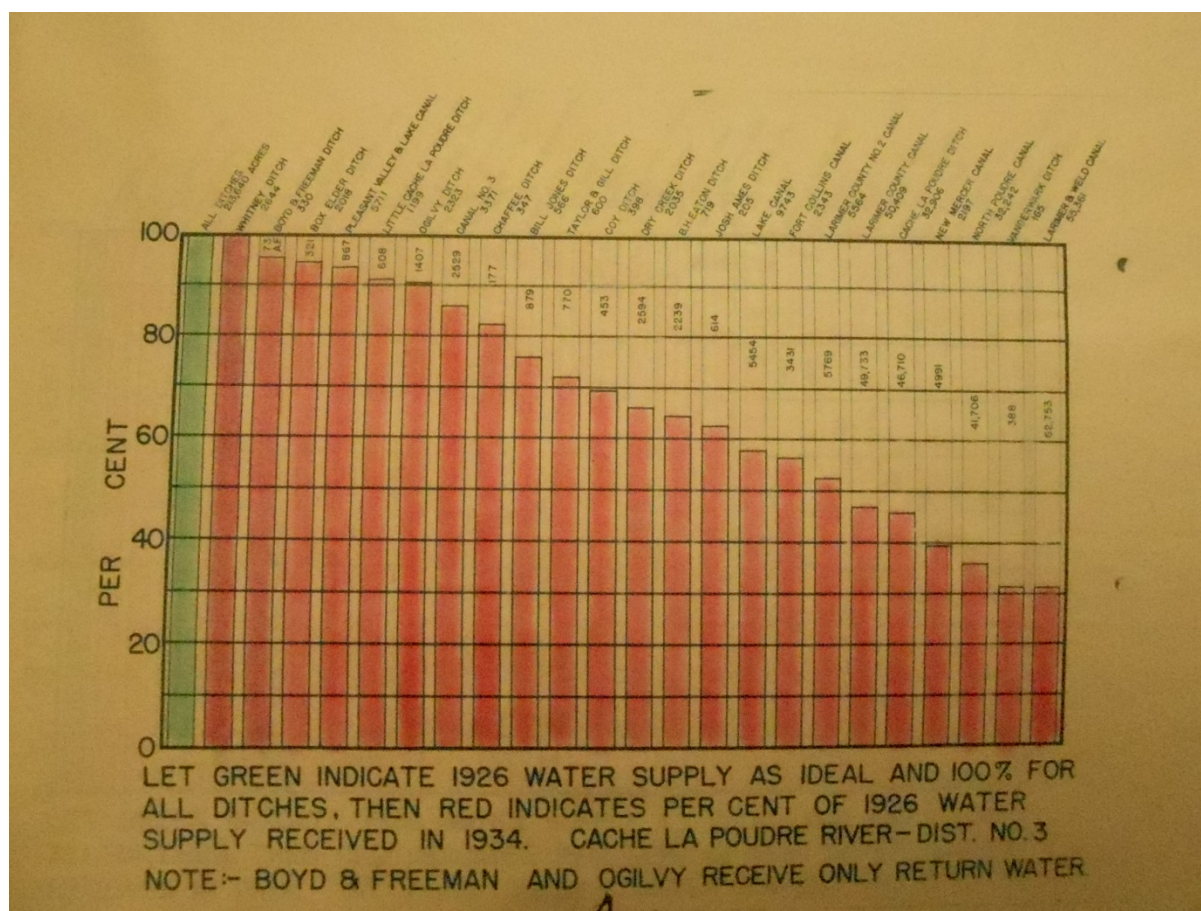 ALL DITCHES
213,640 ACRES
WHITNEY DITCH
2644
BOYD & FREEMAN DITCH
330
BOX ELDER DITCH
2018
PLEASANT VALLEY & LAKE CANAL
5711
LITTLE CACHE LA POUDRE DITCH
1199
OGILVY DITCH
2323
CANAL NO. 3
3371
CHAFFEE DITCH
347
BILL JONES DITCH
566
TAYLOR & GILL DITCH
600
COY DITCH
398
DRY CREEK DITCH
2035
B.H. EATON DITCH
719
JOSH AMES DITCH
205
LAKE CANAL
9743
FORT COLLINS CANAL
2343
LARIMER COUNTY NO. 2 CANAL
5564
LARIMER COUNTY CANAL
50409
CACHE LA POUDRE DITCH
32,906
NEW MERCER CANAL
NORTH POUDRE CANAL
32,242
DITCH
165
LARIMER & WELD CANAL
73
A.F.
321
867
608
1407
2529
177
879
770
453
2594
2239
614
5454
3431
5769
49,733
46,710
4991
41,706
388
62,753
100
80
60
40
20
0
PER CENT
LET GREEN INDICATE 1926 WATER SUPPLY AS IDEAL AND 100% FOR
ALL DITCHES, THEN RED INDICATES PER CENT OF 1926 WATER
SUPPLY RECEIVED IN 1934. CACHE LA POUDRE RIVER-DIST. NO. 3
NOTE:- BOYD & FREEMAN AND OGILVY RECEIVE ONLY RETURN WATER